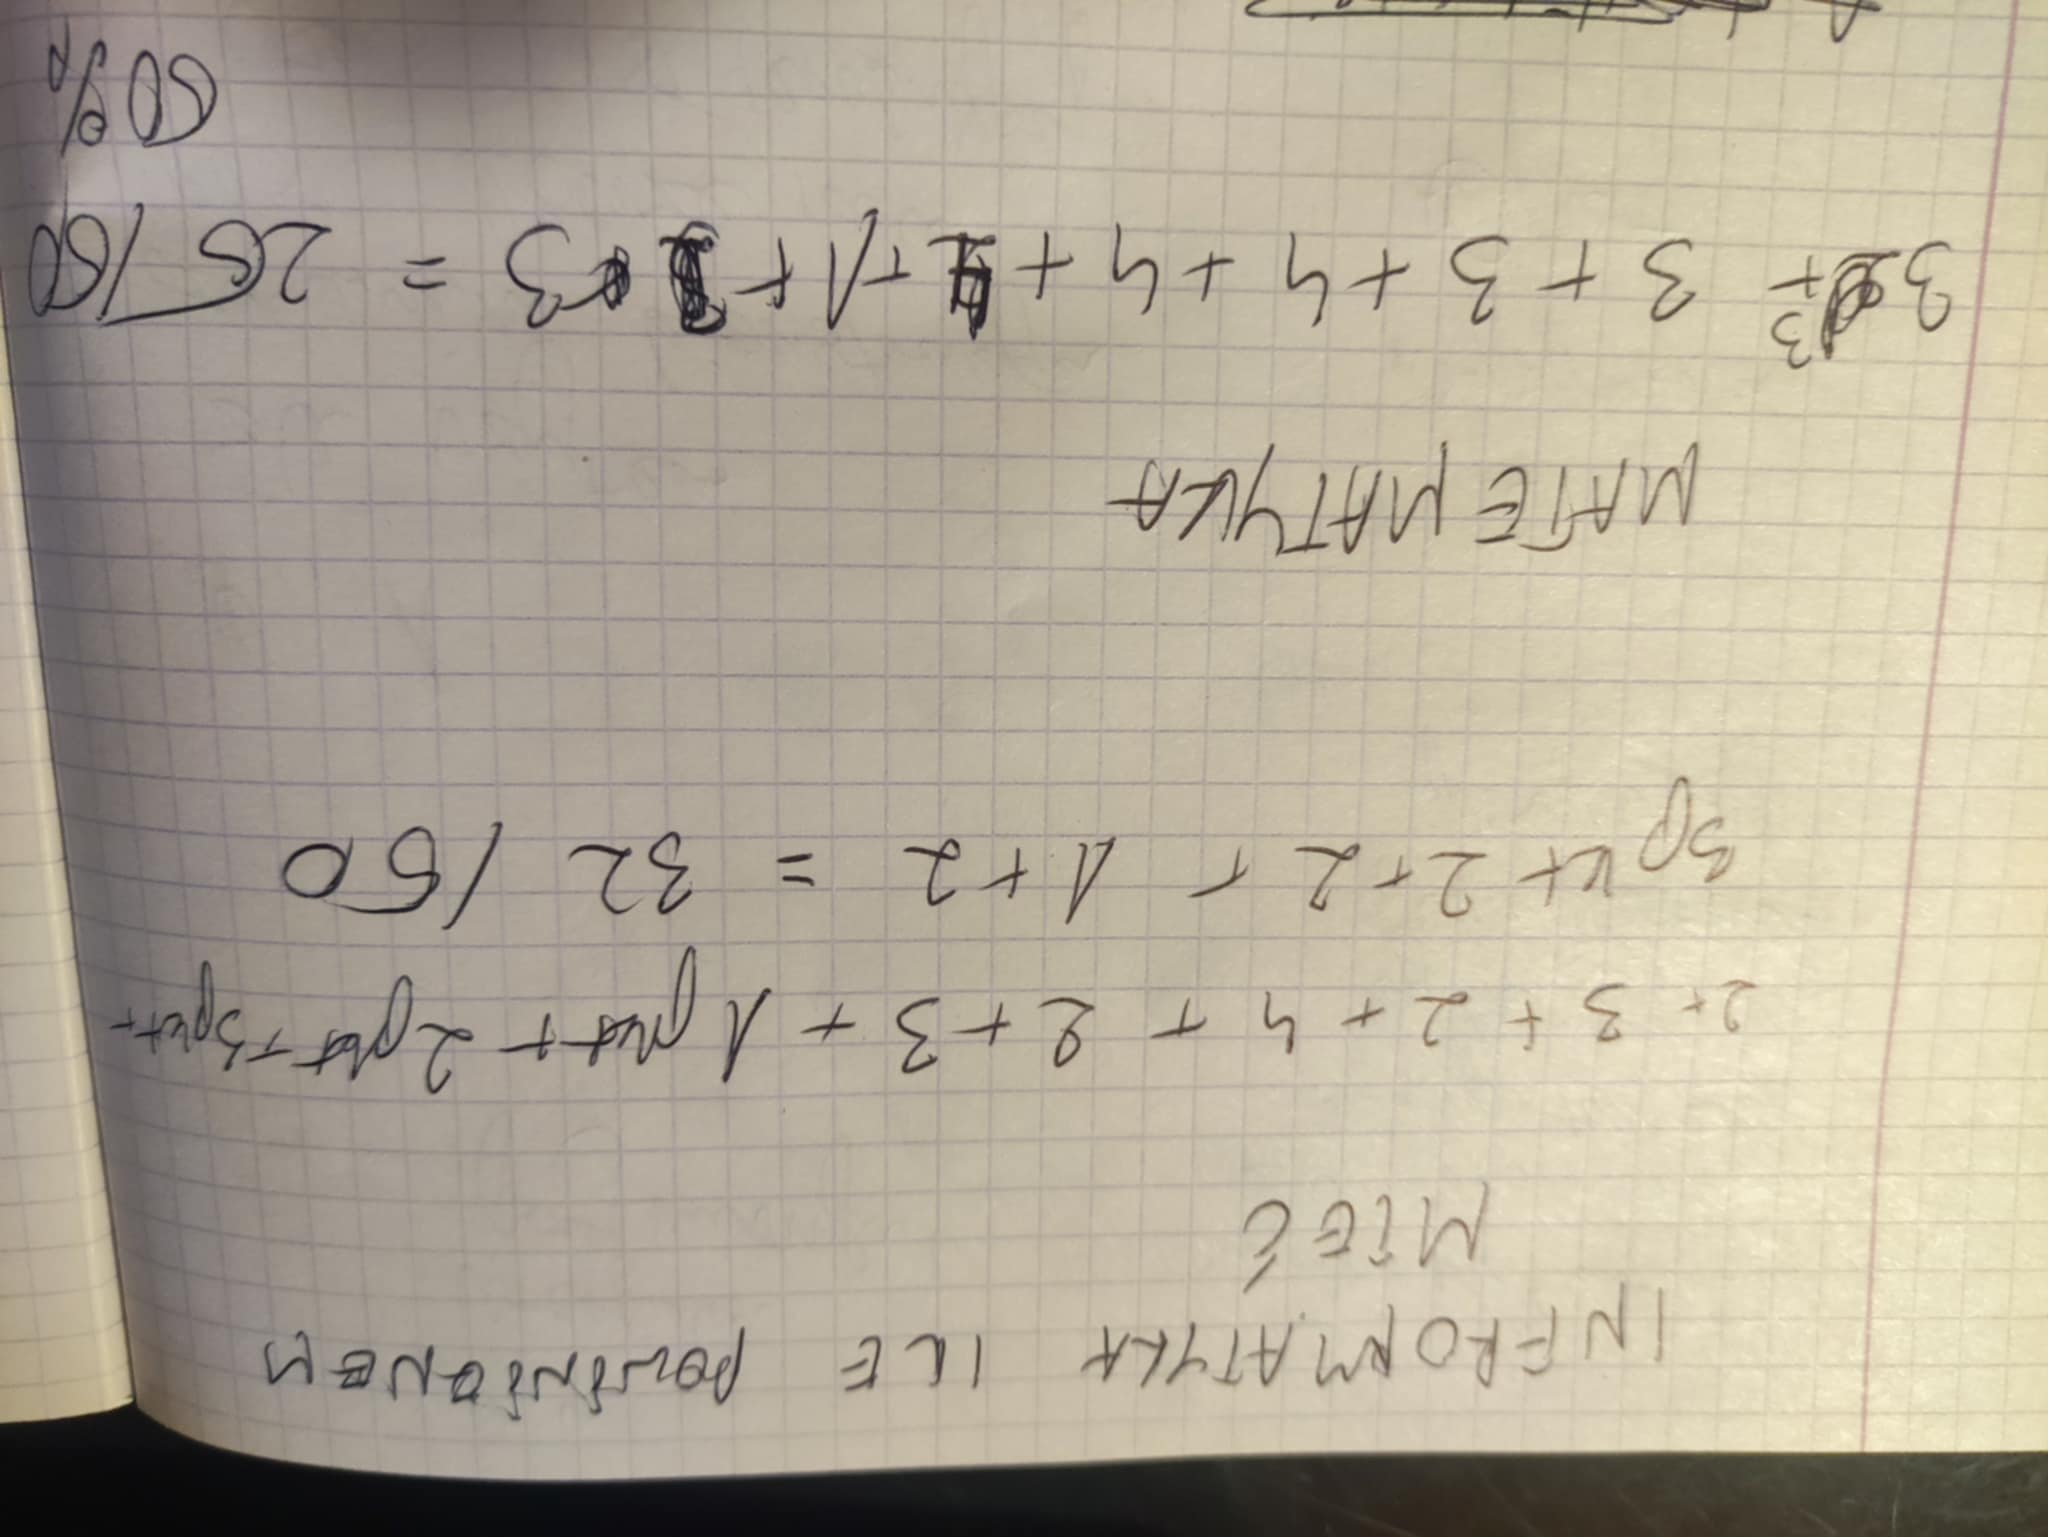 INFROMATYKA ILE POWINIENEM
MIEĆ
2+ 3 + 2 + 4 + 2 + 3 + 1 pkt + 2 pkt + 3pkt +
3pkt 2 + 2 + 1 + 2 = 32 / 50
MATEMATYKA
3
3 + 3 + 3 + 4 + 4 + + 1 + + 3 = 25 / 50
50%